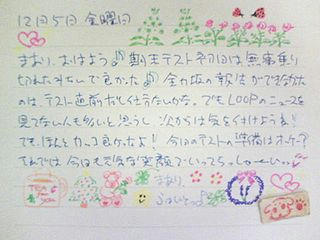 12月5日 金曜日
まおり、おはよう♪ 期末テスト初日は無事乗り
切れたみたいで良かった♪ 全力坂の報告ができなかった
のは、テスト直前だし仕方ないかな。でもLOOPのニュースを
見てない人も多いと思うし、次からは気を付けようね!
でも、ほんとカッコ良かったよ! 今日のテストの準備はオッケー?
それでは 今日も元気な笑顔でいってらっしゃーいっ♪
TEA
for
you
まおり
ふぁいとっ♪